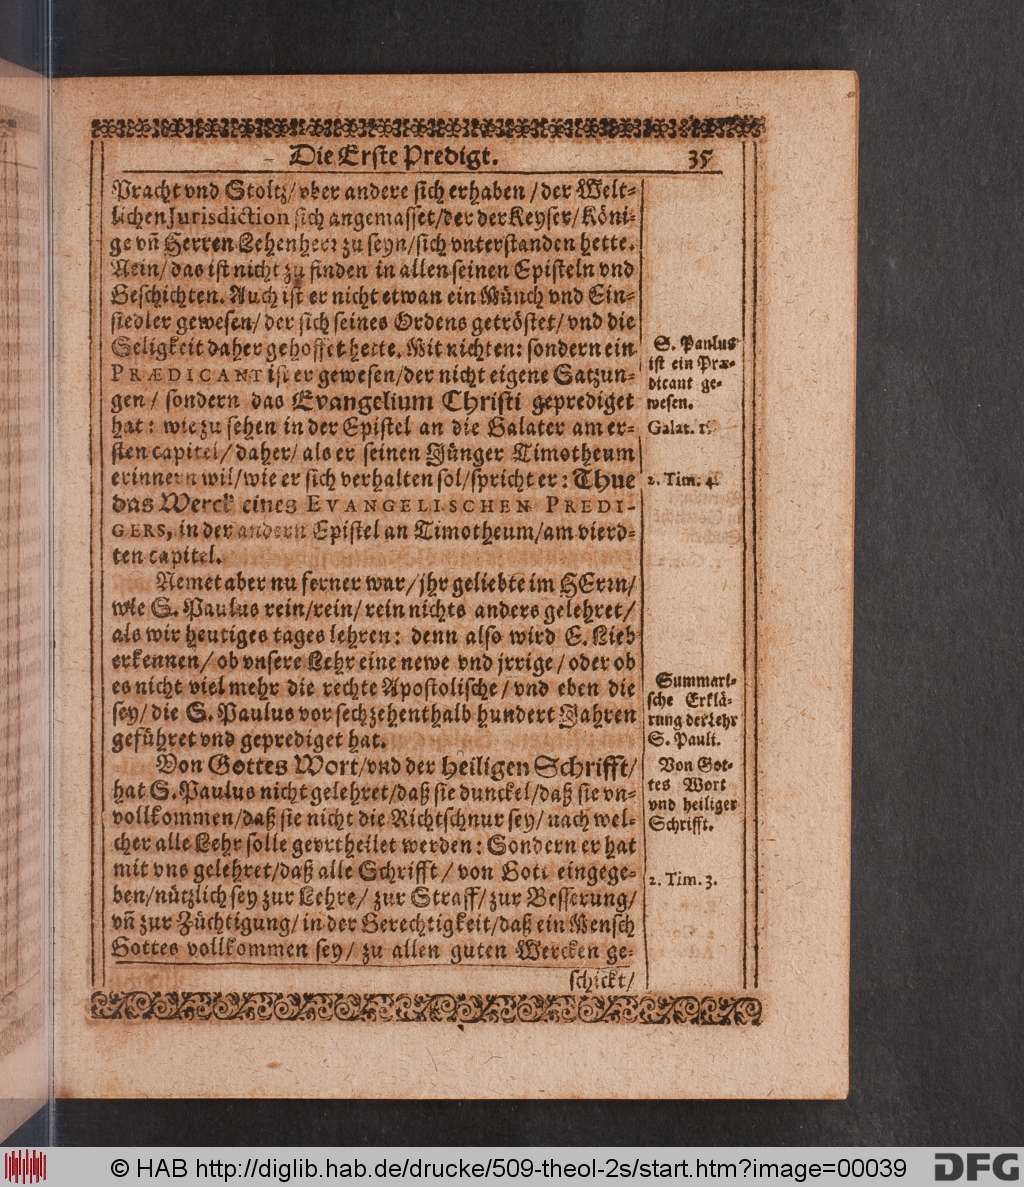 Die Erste Predigt. 35
Pracht vnd Stoltz/ vber andere sich erhaben / der Welt-
lichen Jurisdiction sich angemasset/der der Keyser/Köni-
ge vñ Herren Lehenherr zu seyn/sich vnterstanden hette.
Nein/ das ist nicht zu finden in allen seinen Episteln vnd
Geschichten. Auch ist er nicht etwan ein Münch vnd Ein-
siedler gewesen/ der sich seines Ordens getröstet/ vnd die
Seligkeit daher gehoffet hette. Mit nichten: sondern ein
PRÆDICANT ist er gewesen/der nicht eigene Satzun-
gen / sondern das Evangelium Christi geprediget
hat: wie zu sehen in der Epistel an die Galater am er-
sten capitel/ daher/ als er seinen Jünger Timotheum
erinnern wil/wie er sich verhalten sol/spricht er: Thue
das Werck eines EVANGELISCHEN PREDI-
GERS, in der andern Epistel an Timotheum/am vierd-
ten capitel.
Nemet aber nu ferner war/jhr geliebte im HErrn/
wie S. Paulus rein/rein/ rein nichts anders gelehret/
als wir heutiges tages lehren: denn also wird E. Lieb
erkennen/ ob vnsere Lehr eine newe vnd jrrige/ oder ob
es nicht viel mehr die rechte Apostolische/ vnd eben die
sey/ die S. Paulus vor sechzehenthalb hundert Jahren
geführet vnd geprediget hat.
Von Gottes Wort/vnd der heiligen Schrifft/
hat S. Paulus nicht gelehret/daß sie dunckel/daß sie vn-
vollkommen/daß sie nicht die Richtschnur sey/ nach wel-
cher alle Lehr solle gevrtheilet werden: Sondern er hat
mit vns gelehret/daß alle Schrifft / von Gott eingege-
ben/nützlich sey zur Lehre/ zur Straff/ zur Besserung/
vñ zur Züchtigung/ in der Gerechtigkeit/daß ein Mensch
Gottes vollkommen sey/ zu allen guten Wercken ge-
schickt/
S. Paulus
ist ein Præ-
dicant ge-
wesen.
Galat. 1.
2. Tim. 4.
Summari-
sche Erklä-
rung der Lehr
S. Pauli.
Von Got-
tes Wort
vnd heiliger
Schrifft.
2. Tim. 3.
© HAB http://diglib.hab.de/drucke/509-theol-2s/start.htm?image=00039
DFG